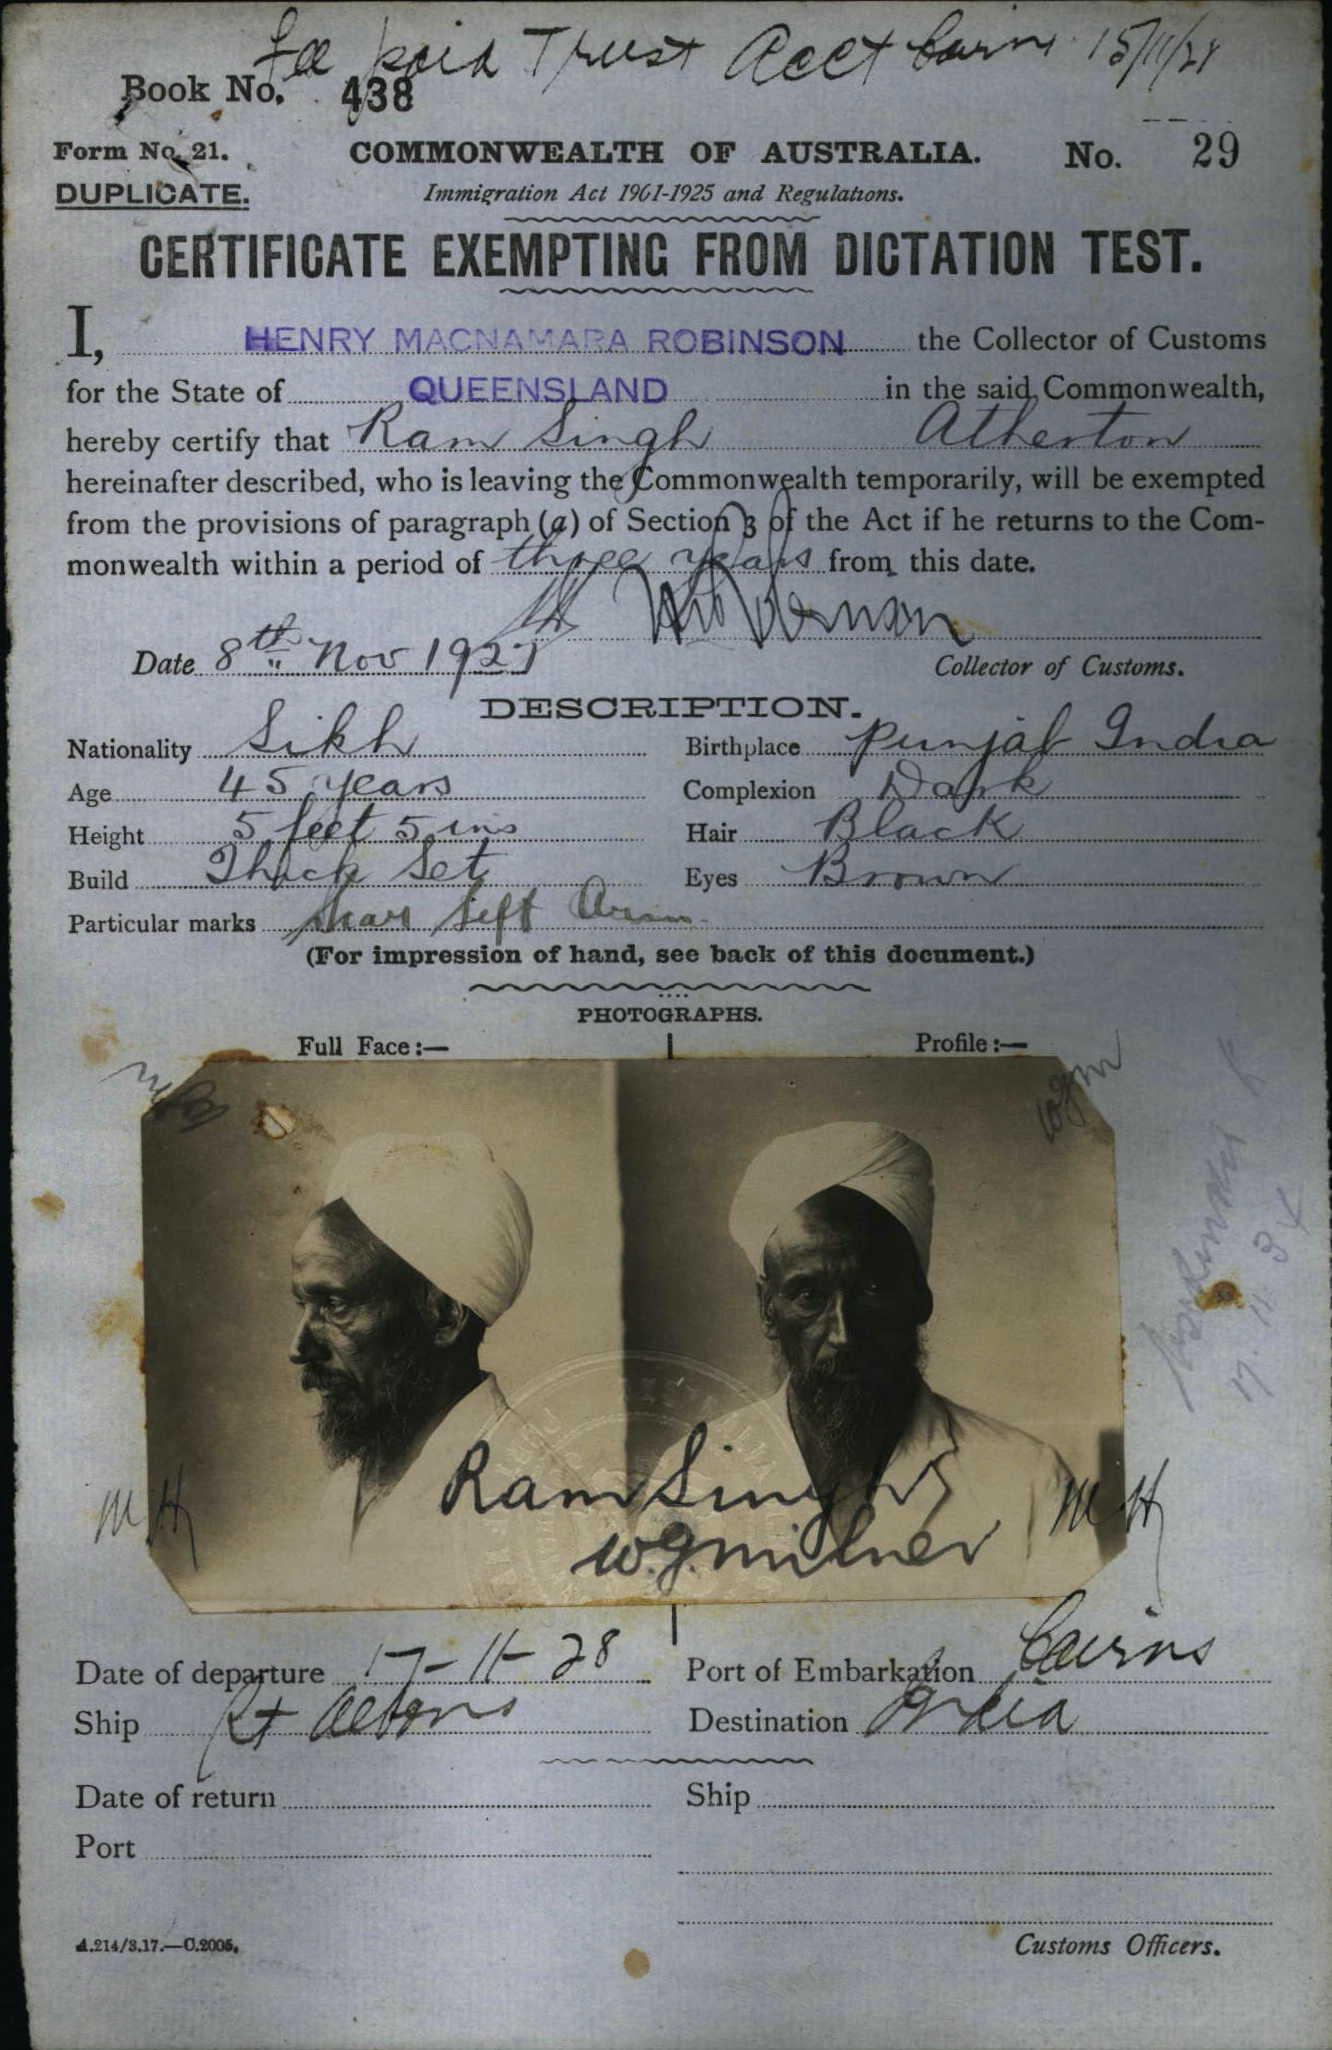 Fee paid Trust Acct Cairns 15/11/28
Book No. 438
Form No. 21. COMMONWEALTH OF AUSTRALIA. No. 29
DUPLICATE. Immigration Act 1901-1925 and Regulations.
CERTIFICATE EXEMPTING FROM DICTATION TEST.
I, HENRY MACNAMARA ROBINSON the Collector of Customs
for the State of QUEENSLAND in the said Commonwealth,
hereby certify that Ram Singh Atherton
hereinafter described, who is leaving the Commonwealth temporarily, will be exempted
from the provisions of paragraph (a) of Section 3 of the Act if he returns to the Com-
monwealth within a period of three years from this date.
Date 8th Nov 1927 Collector of Customs.
DESCRIPTION.
Nationality Sikh Birthplace Punjab India
Age 45 years Complexion Dark
Height 5 feet 5 ins Hair Black
Build Thick Set Eyes Brown
Particular marks Scar Left Arm
(For impression of hand, see back of this document.)
PHOTOGRAPHS.
Full Face:— Profile:—
wgm
Ram Singh
M.H M H
W.G. Milner
17.11.34
Date of departure 17-11-28 Port of Embarkation Cairns
Ship St Albans Destination India
Date of return Ship
Port
A.214/3.17.—C.2005. Customs Officers.